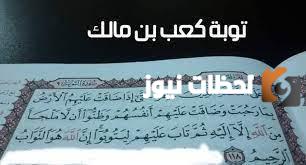 توبة كعب بن مالك
لحظات نيوز
إذا ضاقت عليهم الأرض
بما رحبت وضاقت عليهم أنفسهم وظنوا أن لا ملجأ
من الله إلا إليه ثم تاب عليهم ليتوبوا إن الله هو التواب
الرحيم ١١٨